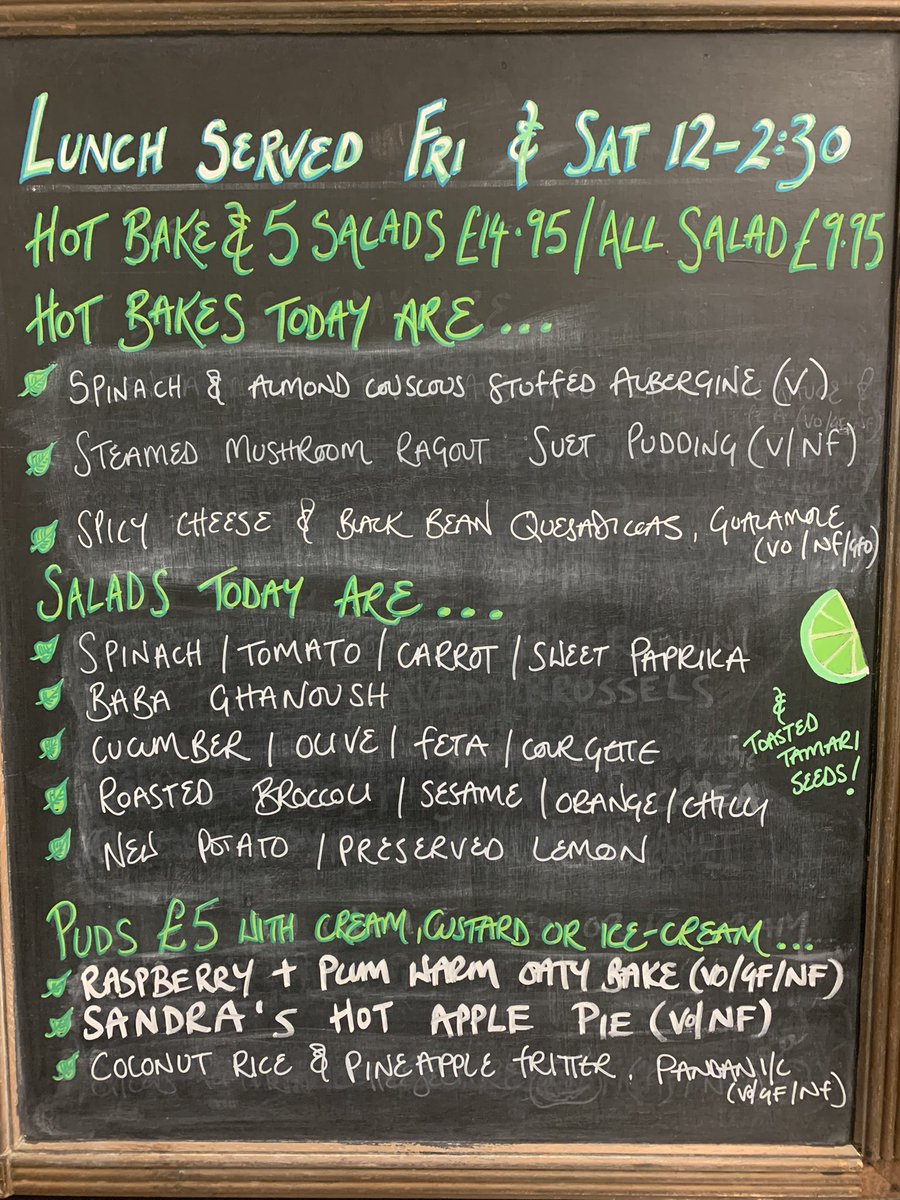 LUNCH SERVED FRI & SAT 12-2:30
HOT BAKE & 5 SALADS £14.95/ALL SALAD £9.95
HOT BAKES TODAY ARE...
SPINACH & ALMOND COUSCOUS STUFFED AUBERGINE (V)
STEAMED MUSHROOM RAGOUT SUET PUDDING (V/NF)
SPICY CHEESE & BLACK BEAN QUESADILLAS, GUACAMOLE
(VO/NF/GFO)
SALADS TODAY ARE...
SPINACH/TOMATO/CARROT/SWEET PAPRIKA
BABA GHANOUSH
CUCUMBER/OLIVE/FETA/COURGETTE
ROASTED BROCCOLI/SESAME/ORANGE/CHILLY
NEW POTATO/PRESERVED LEMON
&
TOASTED
TAMARI
SEEDS!
PUDS £5 WITH CREAM, CUSTARD OR ICE-CREAM...
RASPBERRY + PLUM WARM OATY BAKE (VO/GF/NF)
SANDRA'S HOT APPLE PIE (VO/NF)
COCONUT RICE & PINEAPPLE FRITTER. PANDAN I/C
(VO/GF/NF)